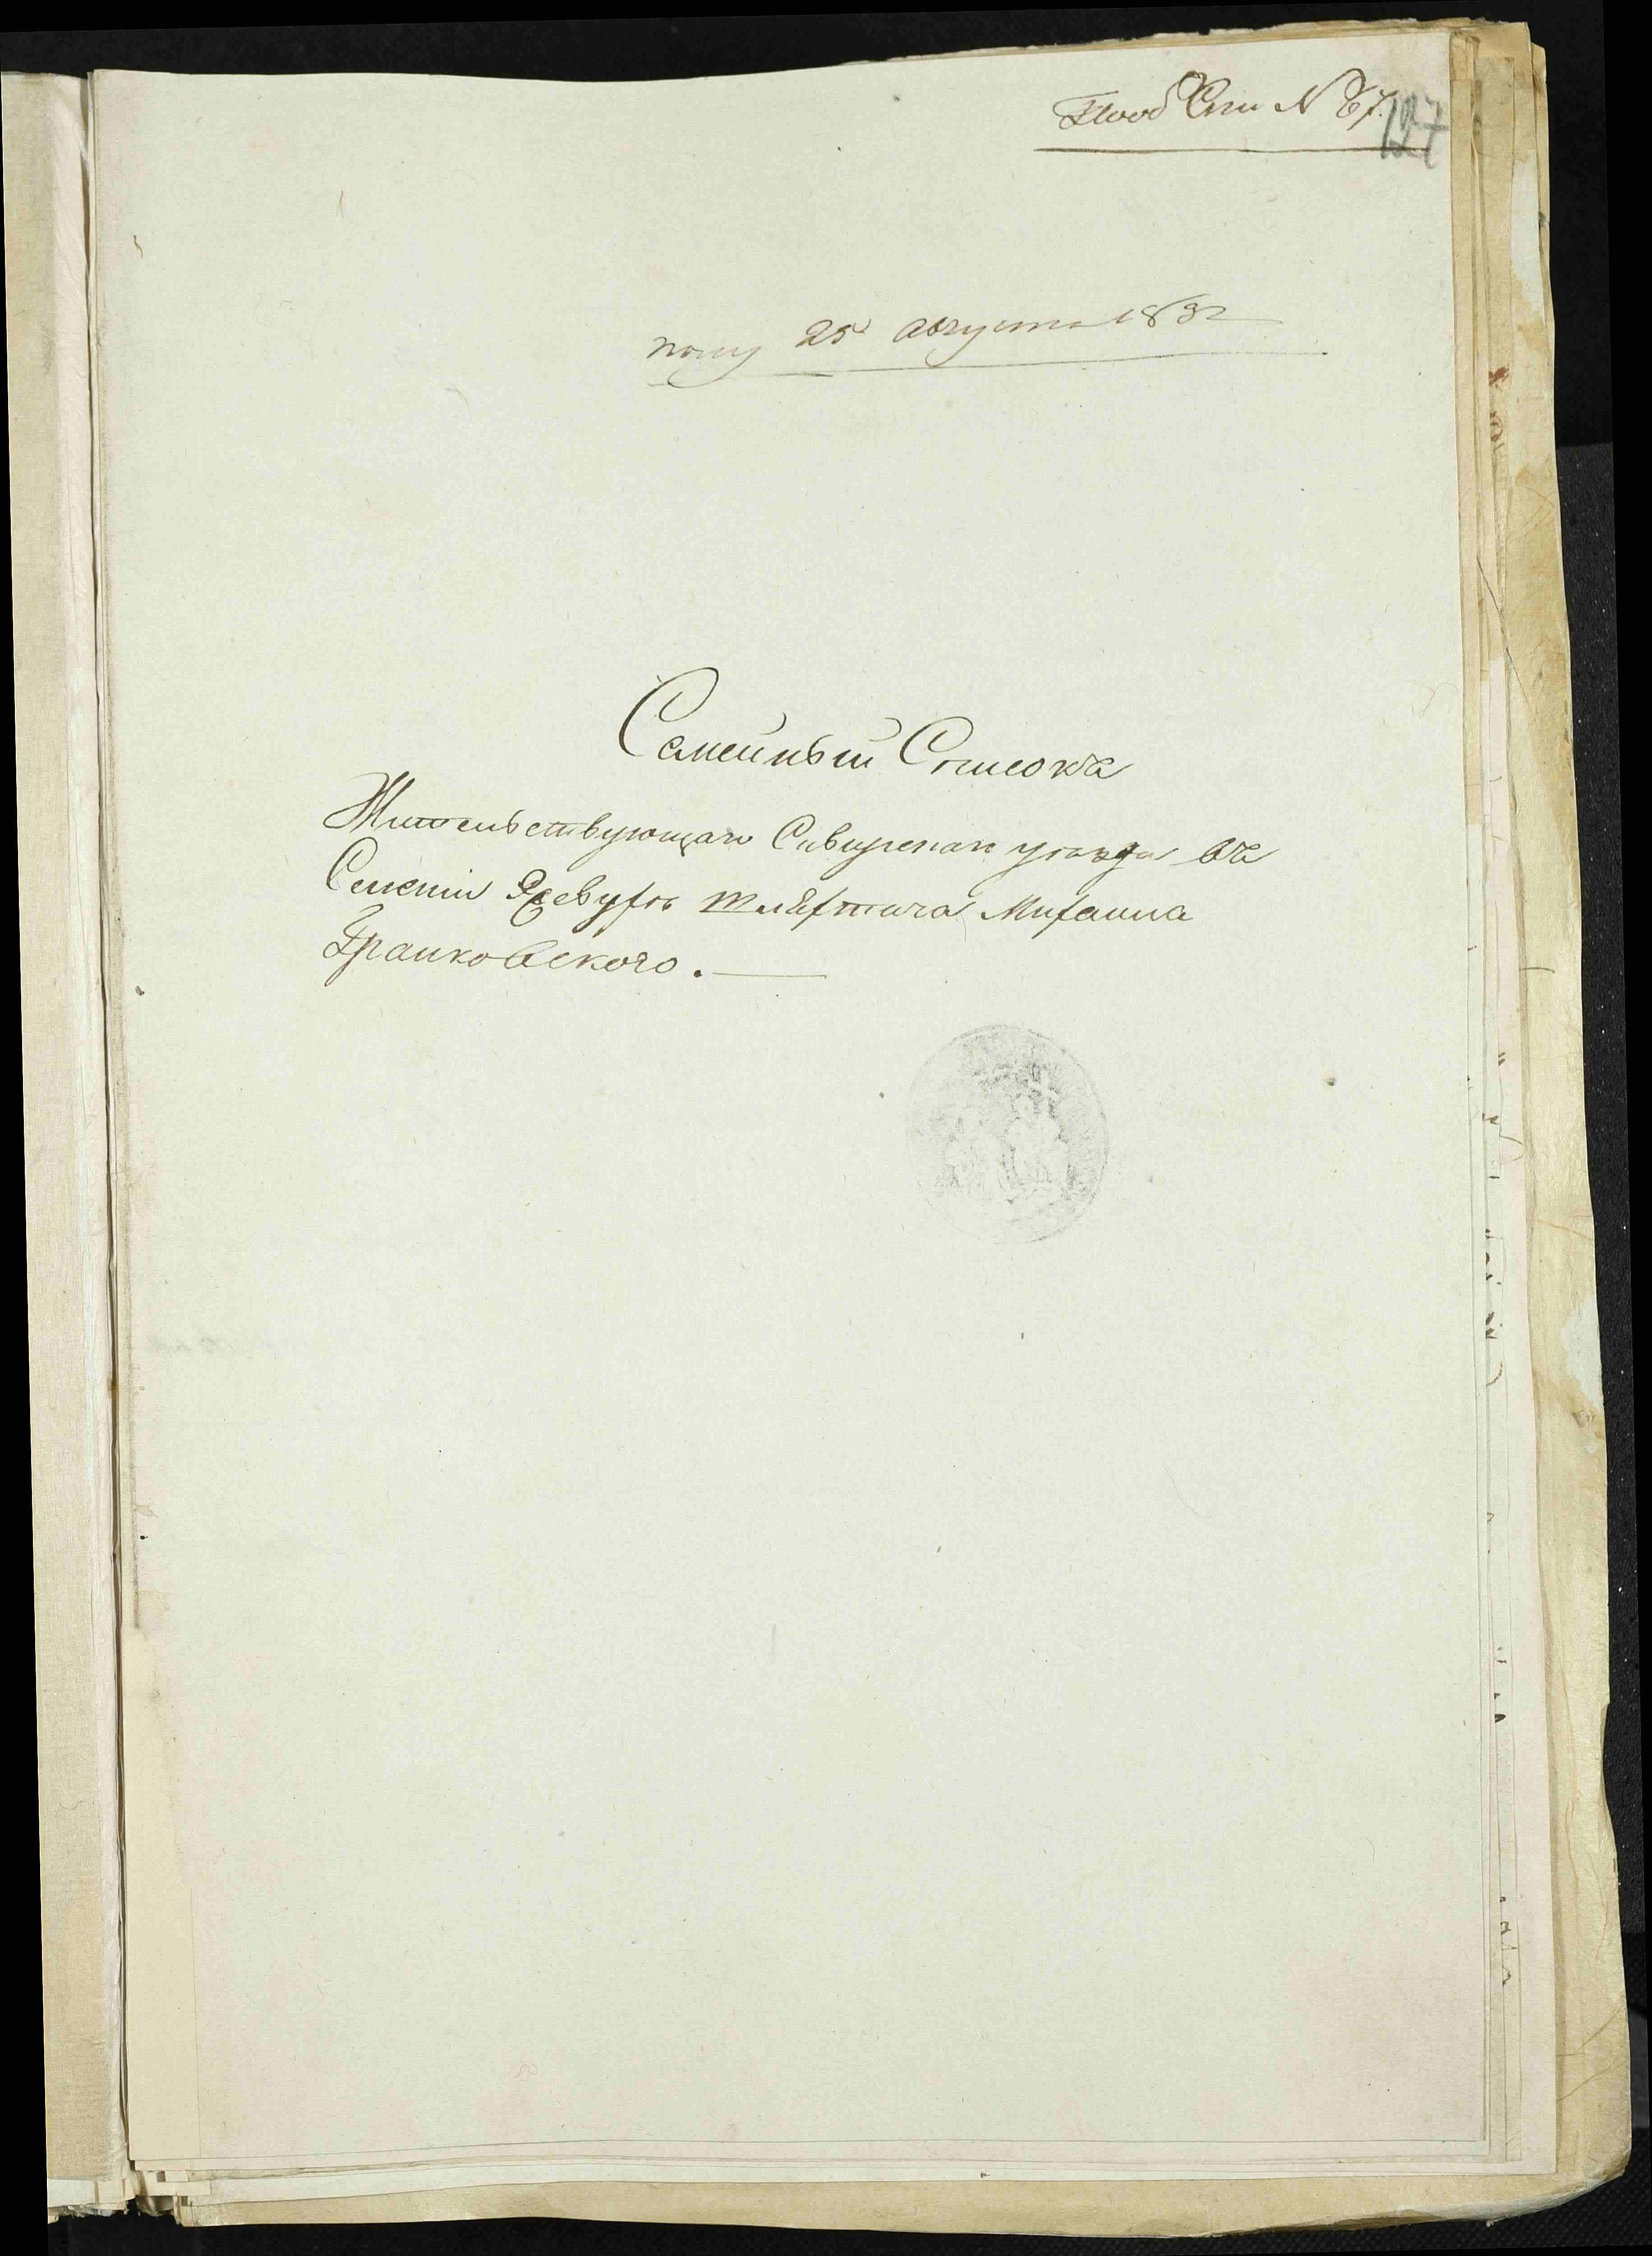 N 67.
127
полу 25 августа 1832
Семейный Списокъ
Жительствующаго Сквирскаго уезда въ
Селении Ягевухѣ шляхтича Михаила
Гранковского.